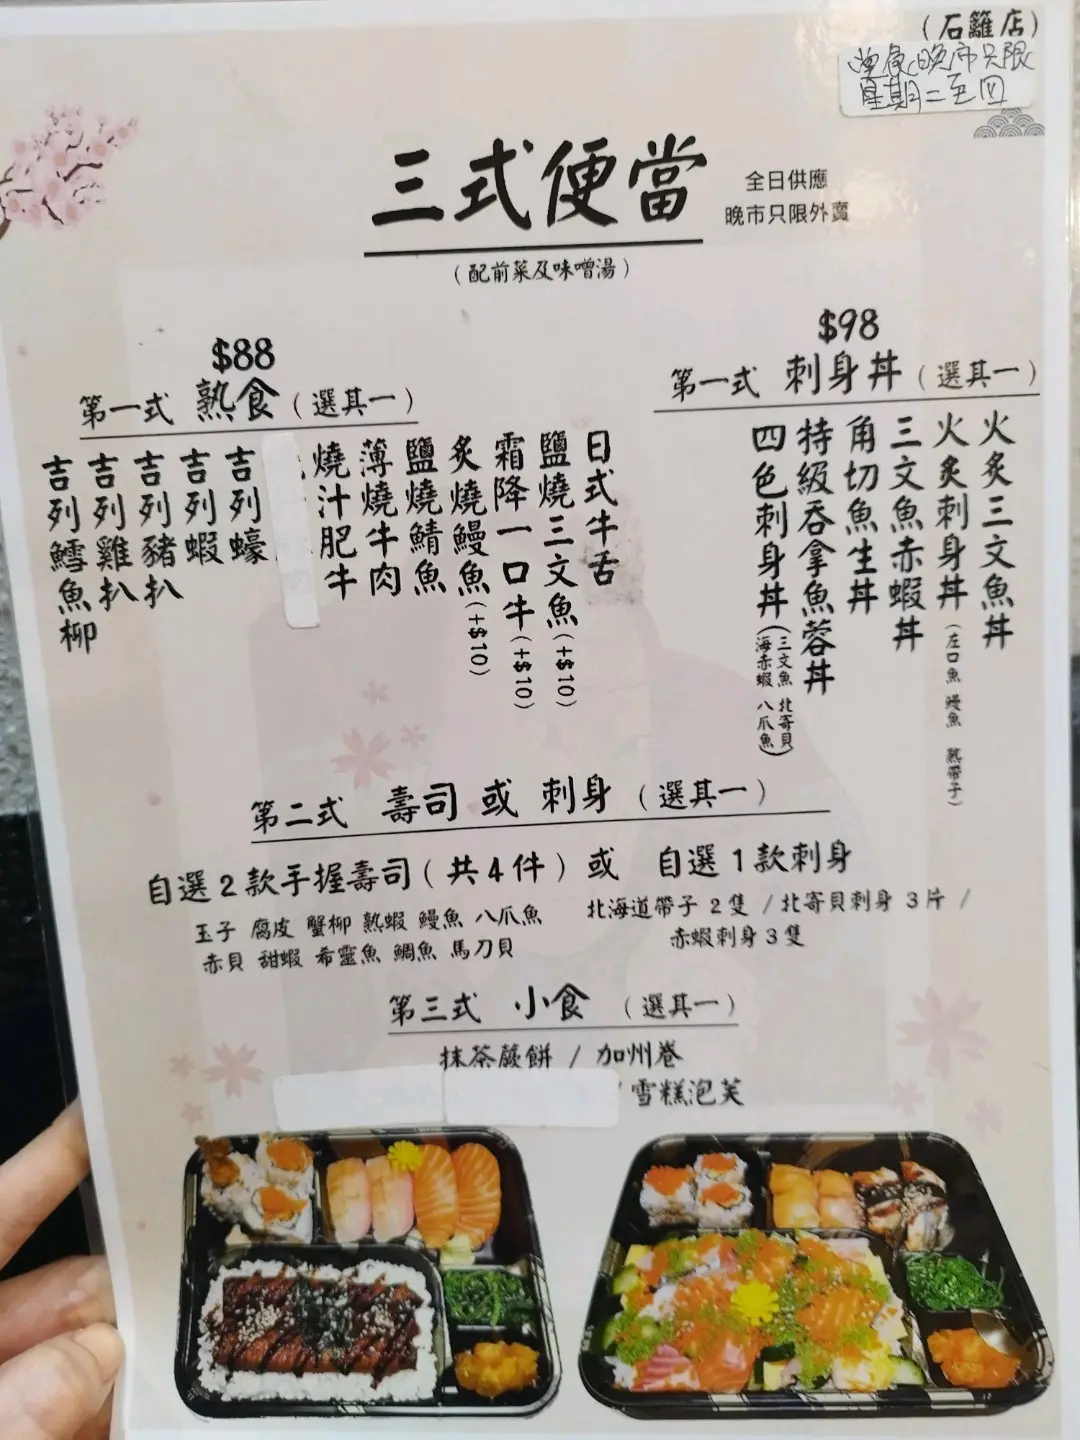 (石籬店)
堂食晚市只限
星期二至四
三式便當
全日供應
晚市只限外賣
(配前菜及味噌湯)
$88
第一式 熟食 (選其一)
日式牛舌
鹽燒三文魚(+$10)
霜降一口牛(+$10)
炙燒鰻魚(+$10)
鹽燒鯖魚
薄燒牛肉
燒汁肥牛
吉列蠔
吉列蝦
吉列豬扒
吉列雞扒
吉列鱈魚柳
$98
第一式 刺身丼 (選其一)
火炙三文魚丼
火炙刺身丼(左口魚 鰻魚 熟帶子)
三文魚赤蝦丼
角切魚生丼
特級吞拿魚蓉丼
四色刺身丼(三文魚 北寄貝
海赤蝦 八爪魚)
第二式 壽司 或 刺身 (選其一)
自選2款手握壽司(共4件) 或 自選1款刺身
玉子 腐皮 蟹柳 熟蝦 鰻魚 八爪魚
赤貝 甜蝦 希靈魚 鯛魚 馬刀貝
北海道帶子 2隻 / 北寄貝刺身 3片 /
赤蝦刺身3隻
第三式 小食 (選其一)
抹茶蕨餅 / 加州卷
/ 雪糕泡芙